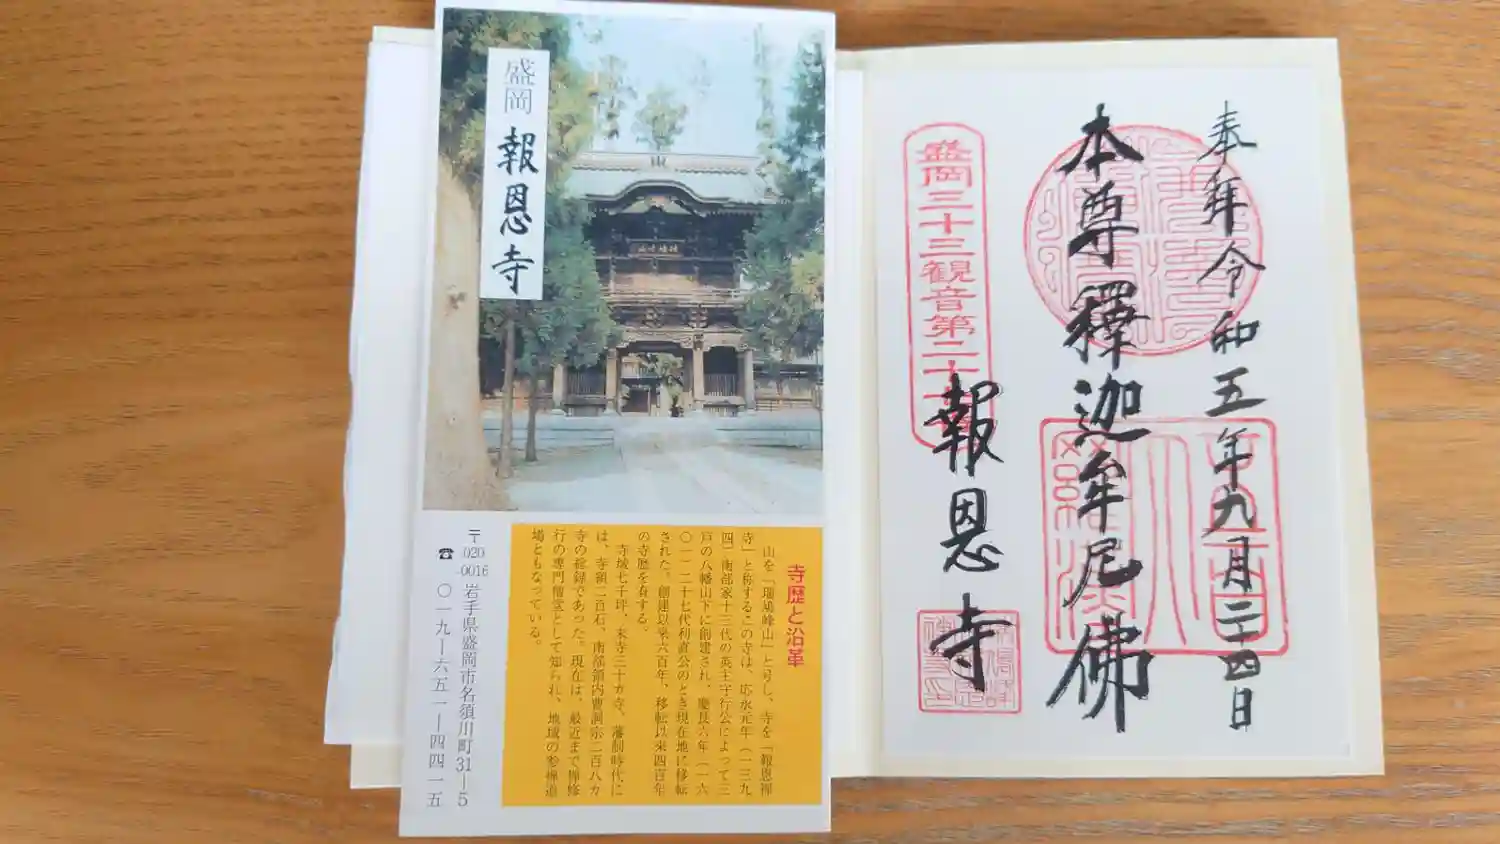 盛岡 報恩寺
寺歴と沿革
山を「瑞鳩峰山」と号し、寺を「報恩禅
寺」と称するこの寺は、応永元年（一三九
四）南部家十三代の英主守行公によって三
戸の八幡山下に創建され、慶長六年（一六
〇一）二十七代利直公のとき現在地に移転
された。創建以来六百年、移転以来四百年
の寺歴を有する。
寺域七千坪、末寺三十カ寺、藩制時代に
は、寺領二百石、南部領内曹洞宗二百八カ
寺の総録であった。現在は、最近まで禅修
行の専門僧堂として知られ、地域の参禅道
場ともなっている。
〒020-0016 岩手県盛岡市名須川町31―5
☎ 〇一九―六五一―四四一五
奉拝 令和五年九月二十四日
本尊釋迦牟尼佛
盛岡三十三観音第二十
報恩寺